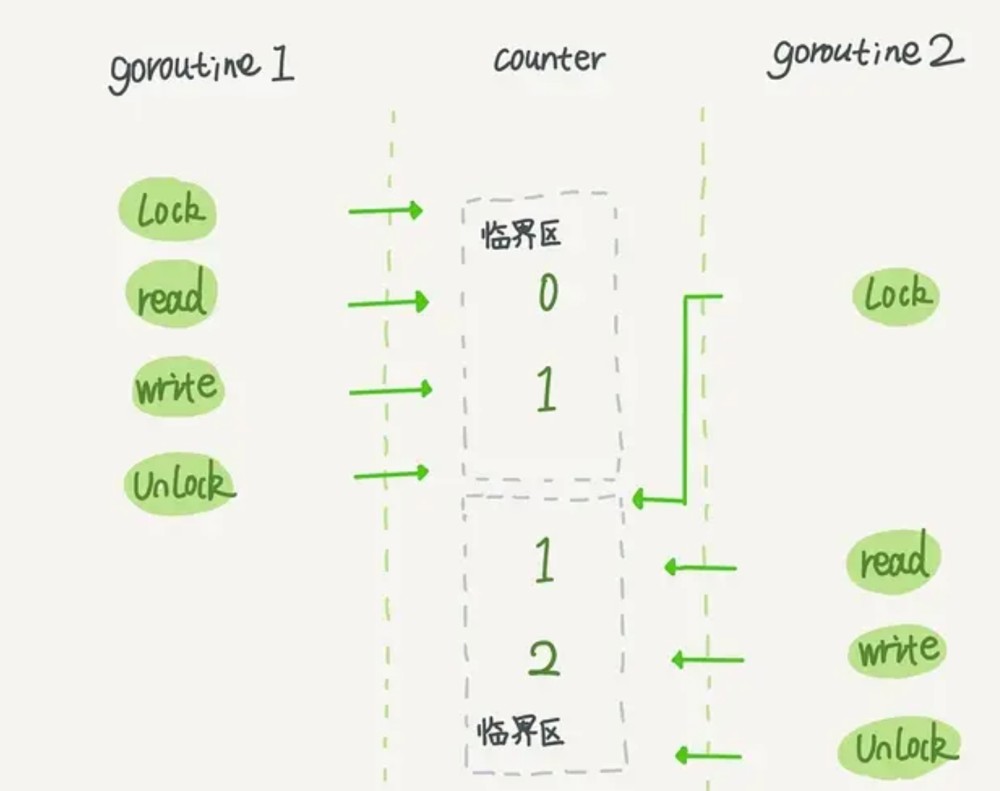 goroutine 1
counter
goroutine 2
Lock
临界区
read
0
Lock
write
1
UnLock
1
read
2
write
临界区
UnLock